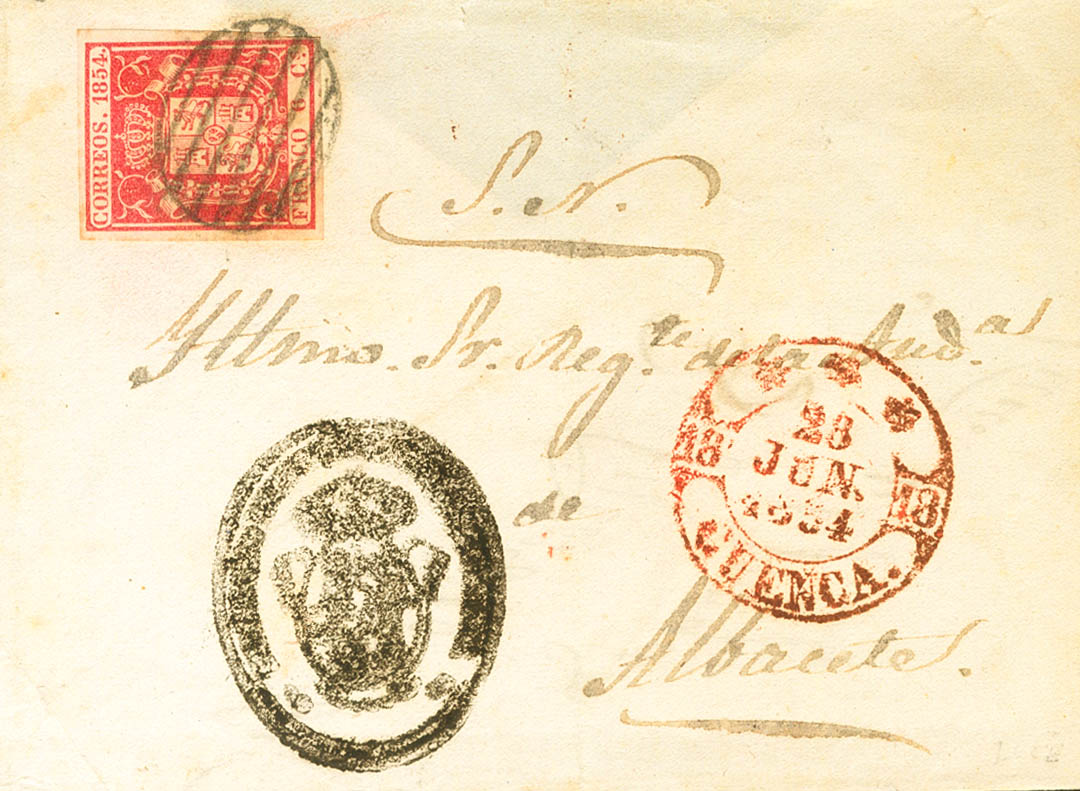 CORREOS. 1854.
FRANCO 6 CS.
S. N.
Yltmo. Sr. Reg.te de la Aud.a
de
Albacete.
18 18
28
JUN.
1854
CUENCA.